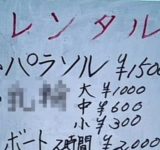 レンタル
・パラソル ¥1500
大 ¥1000
中 ¥600
小 ¥300
ボート 2時間 ¥2,000